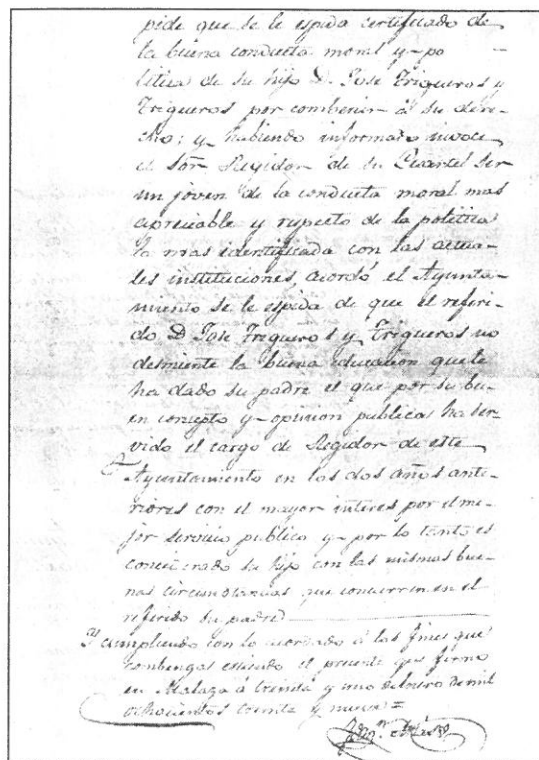 pide que se le espida certificado de
la buena conducta moral y po
litica de su hijo D. Jose Trigueros y
Trigueros por combenir á su dere-
cho; y habiendo informado
el Sor. Regidor de su Cuartel ser
un joven de la conducta moral mas
apreciable y respecto de la politica
la mas identificada con las actua-
les instituciones, acordó el Ayunta-
miento se le espida de que el referi-
do D Jose Trigueros y Trigueros no
desmiente la buena educacion que le
ha dado su padre el que por su bu-
en concepto y opinion publica ha ser-
vido el cargo de Regidor de este
Ayuntamiento en los dos años ante-
riores con el mayor interes por el me-
jor servicio publico y por lo tanto es
su hijo con las mismas bue-
nas circunstancias que concurren en el
referido su padre
Y cumpliendo con lo acordado á los fines que
combengas el presente que firmo
en Malaga á treinta y uno de Enero de mil
ochocientos treinta y nueve =